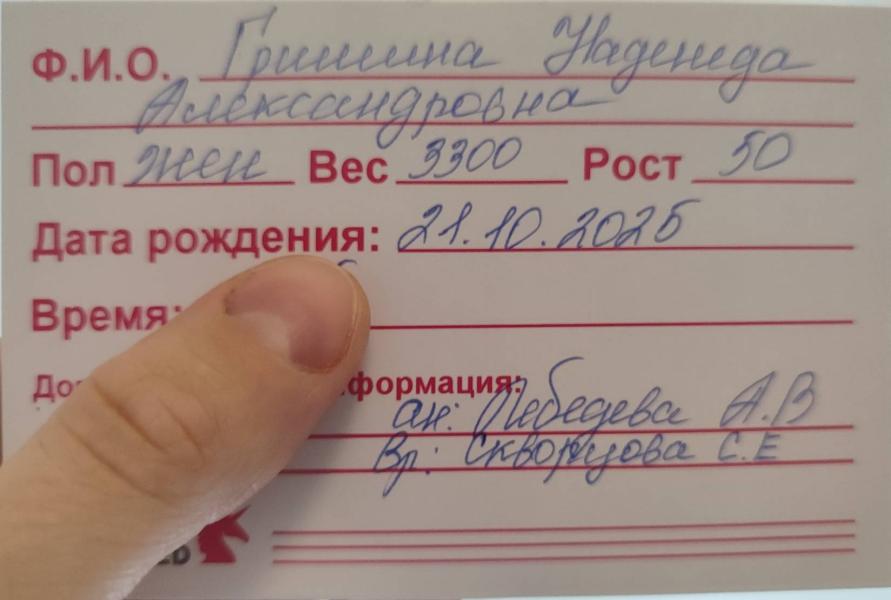 Ф.И.О. Гришина Надежда
Александровна
Пол жен Вес 3300 Рост 50
Дата рождения: 21.10.2025
Время:
ан: Лебедева А.В
Вр: Скворцова С.Е